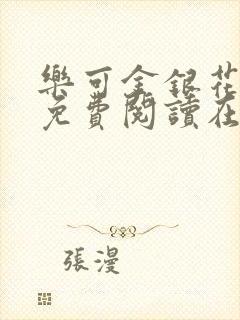 樂可金銀花
免費閱讀在
張漫